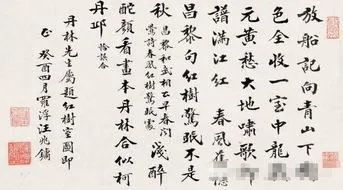 放船記向青山下
色全收一室中龍
元黄愁大地嘯歌
譜滿江紅 春風
昌黎句紅樹驚眠不是
秋 昌黎和武相公早春聞
鶯詩春風紅樹驚眠處 淺醉
酡顏看畫本丹林合似柯
丹邱
丹林先生屬題紅樹室圖即
正 癸酉四月羅浮汪兆鏞